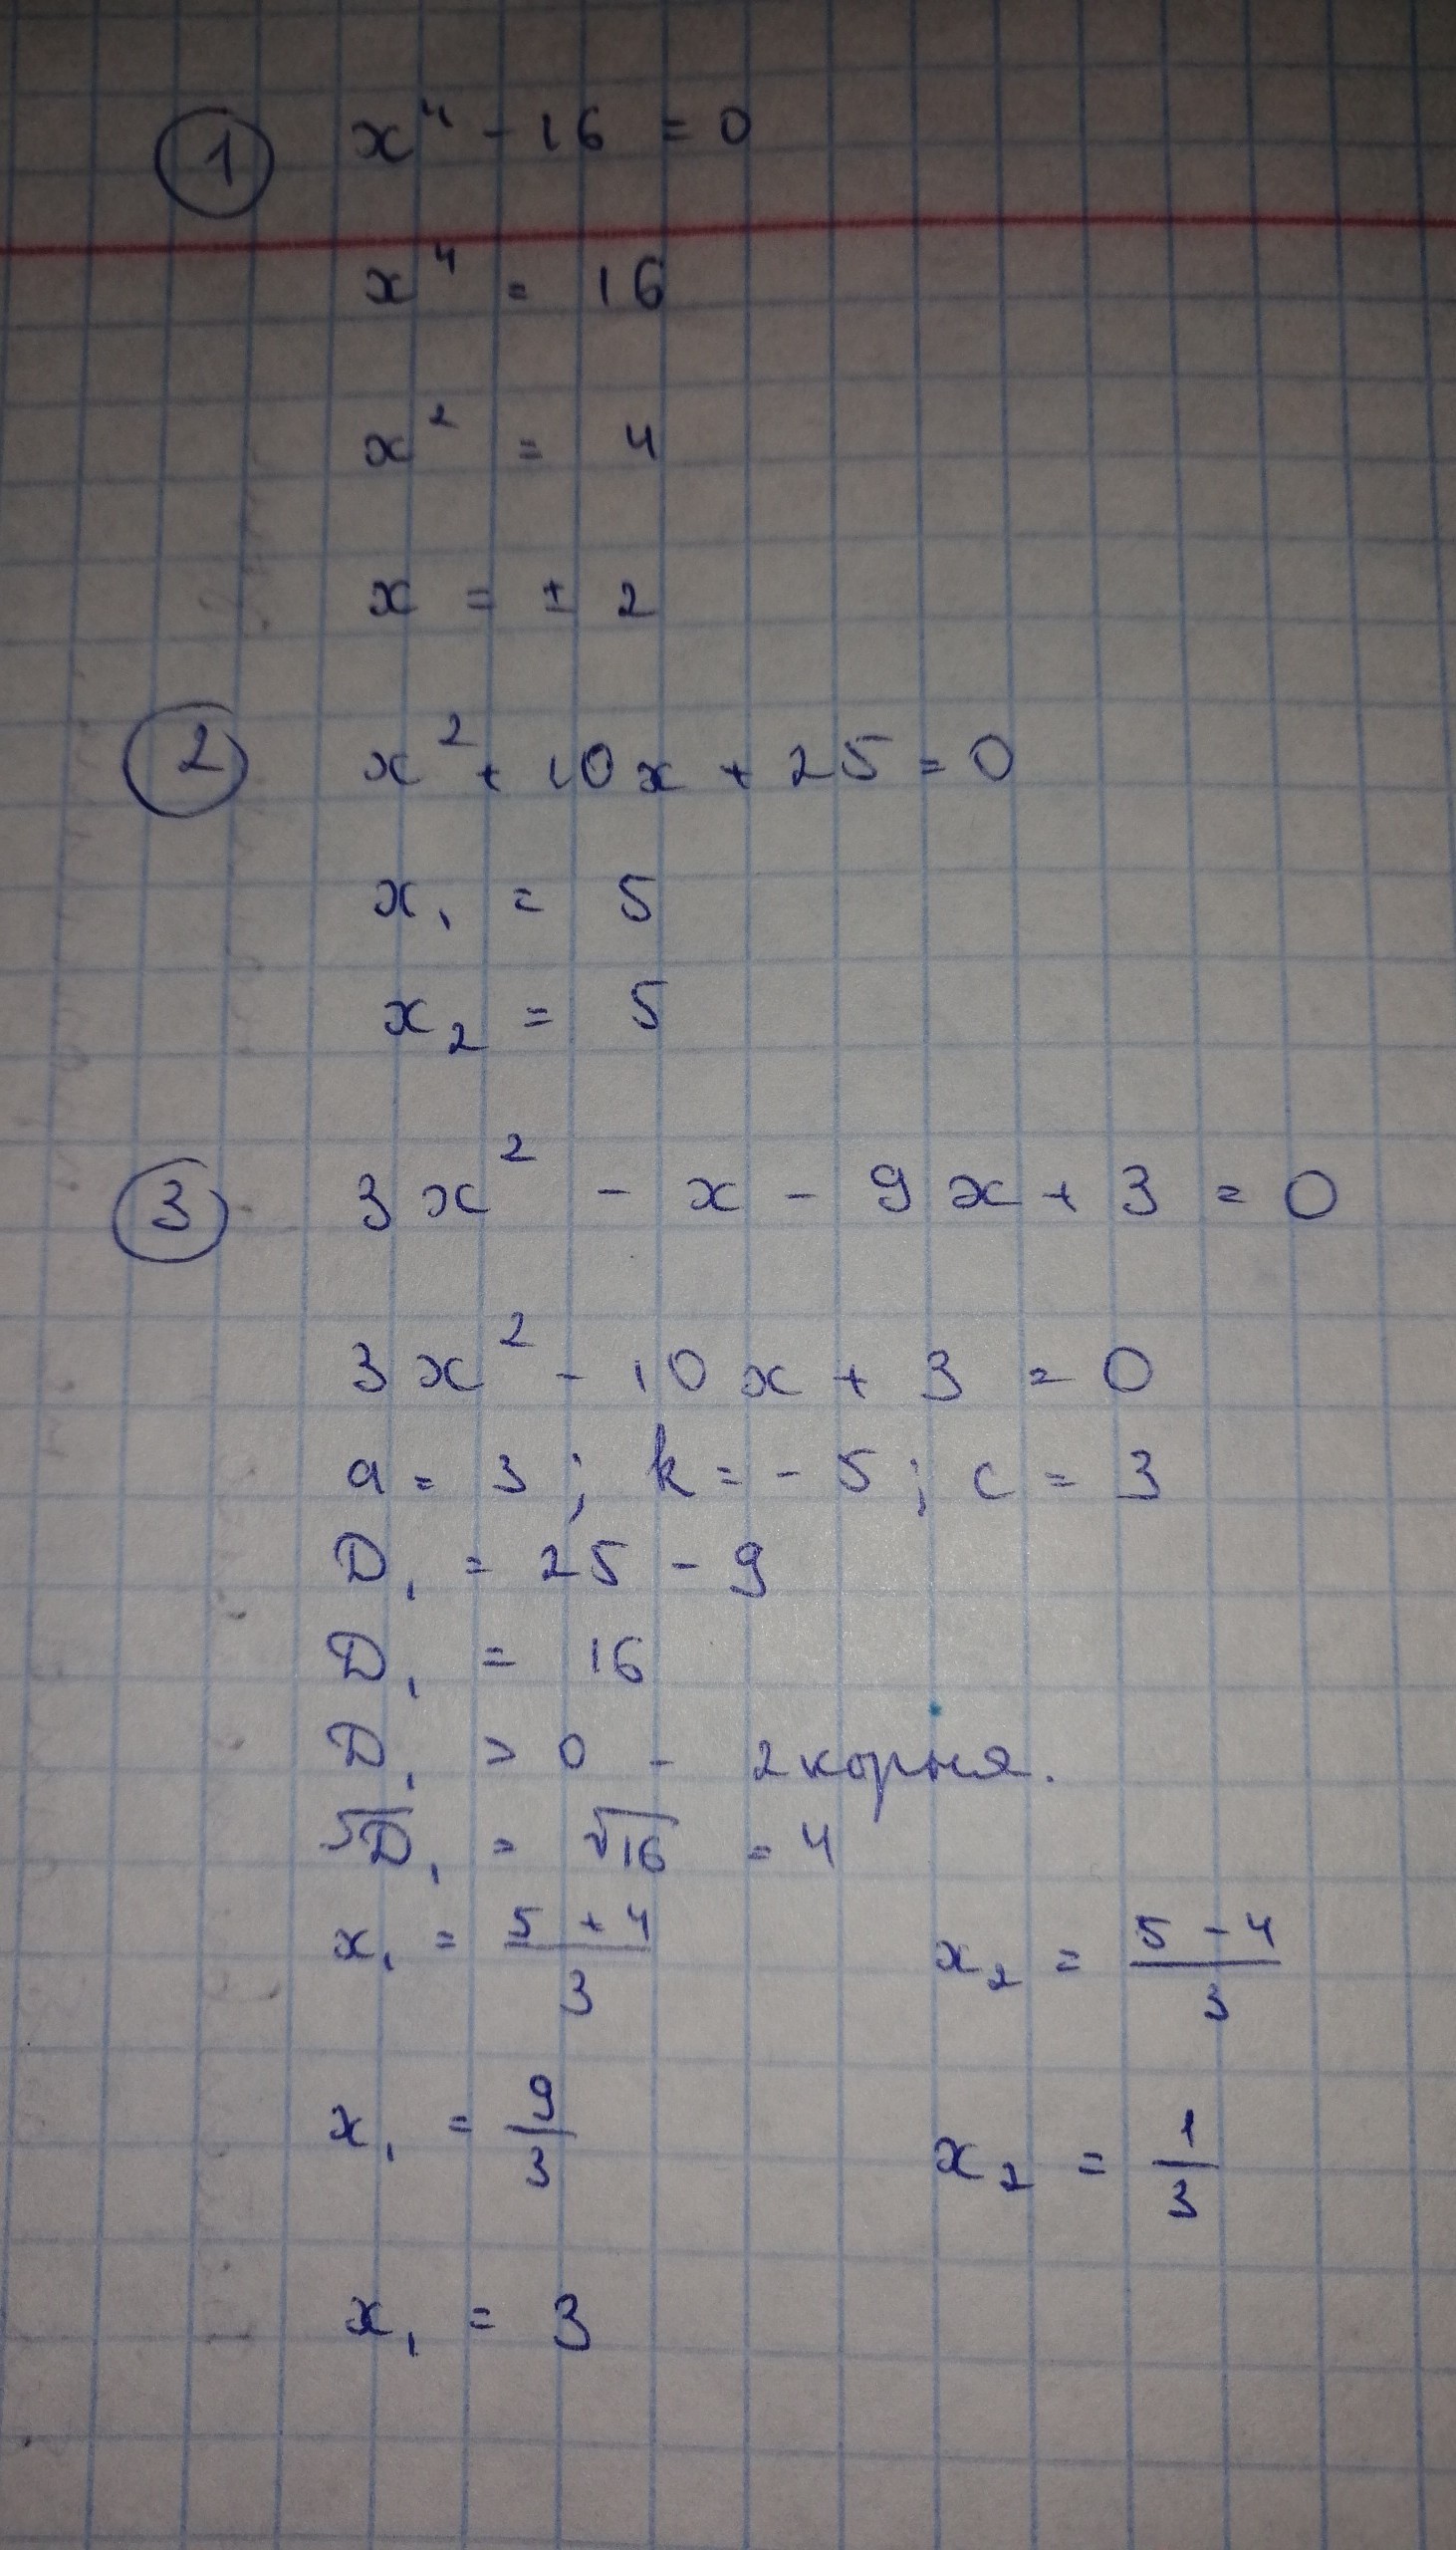 ① x⁴ - 16 = 0
x⁴ = 16
x² = 4
x = ± 2
② x² + 10x + 25 = 0
x₁ = 5
x₂ = 5
③ 3x² - x - 9x + 3 = 0
3x² - 10x + 3 = 0
a = 3 ; k = - 5 ; c = 3
D₁ = 25 - 9
D₁ = 16
D₁ > 0 - 2 корня.
√D₁ = √16 = 4
x₁ = (5 + 4)/3 x₂ = (5 - 4)/3
x₁ = 9/3 x₂ = 1/3
x₁ = 3